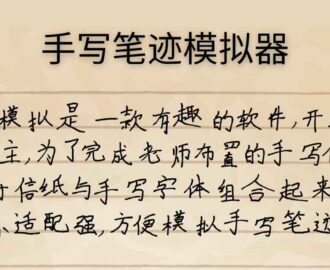 手写笔迹模拟器
模拟是一款有趣的软件,开
主,为了完成老师布置的手写
信纸与手写字体组合起来
适配强,方便模拟手写笔迹